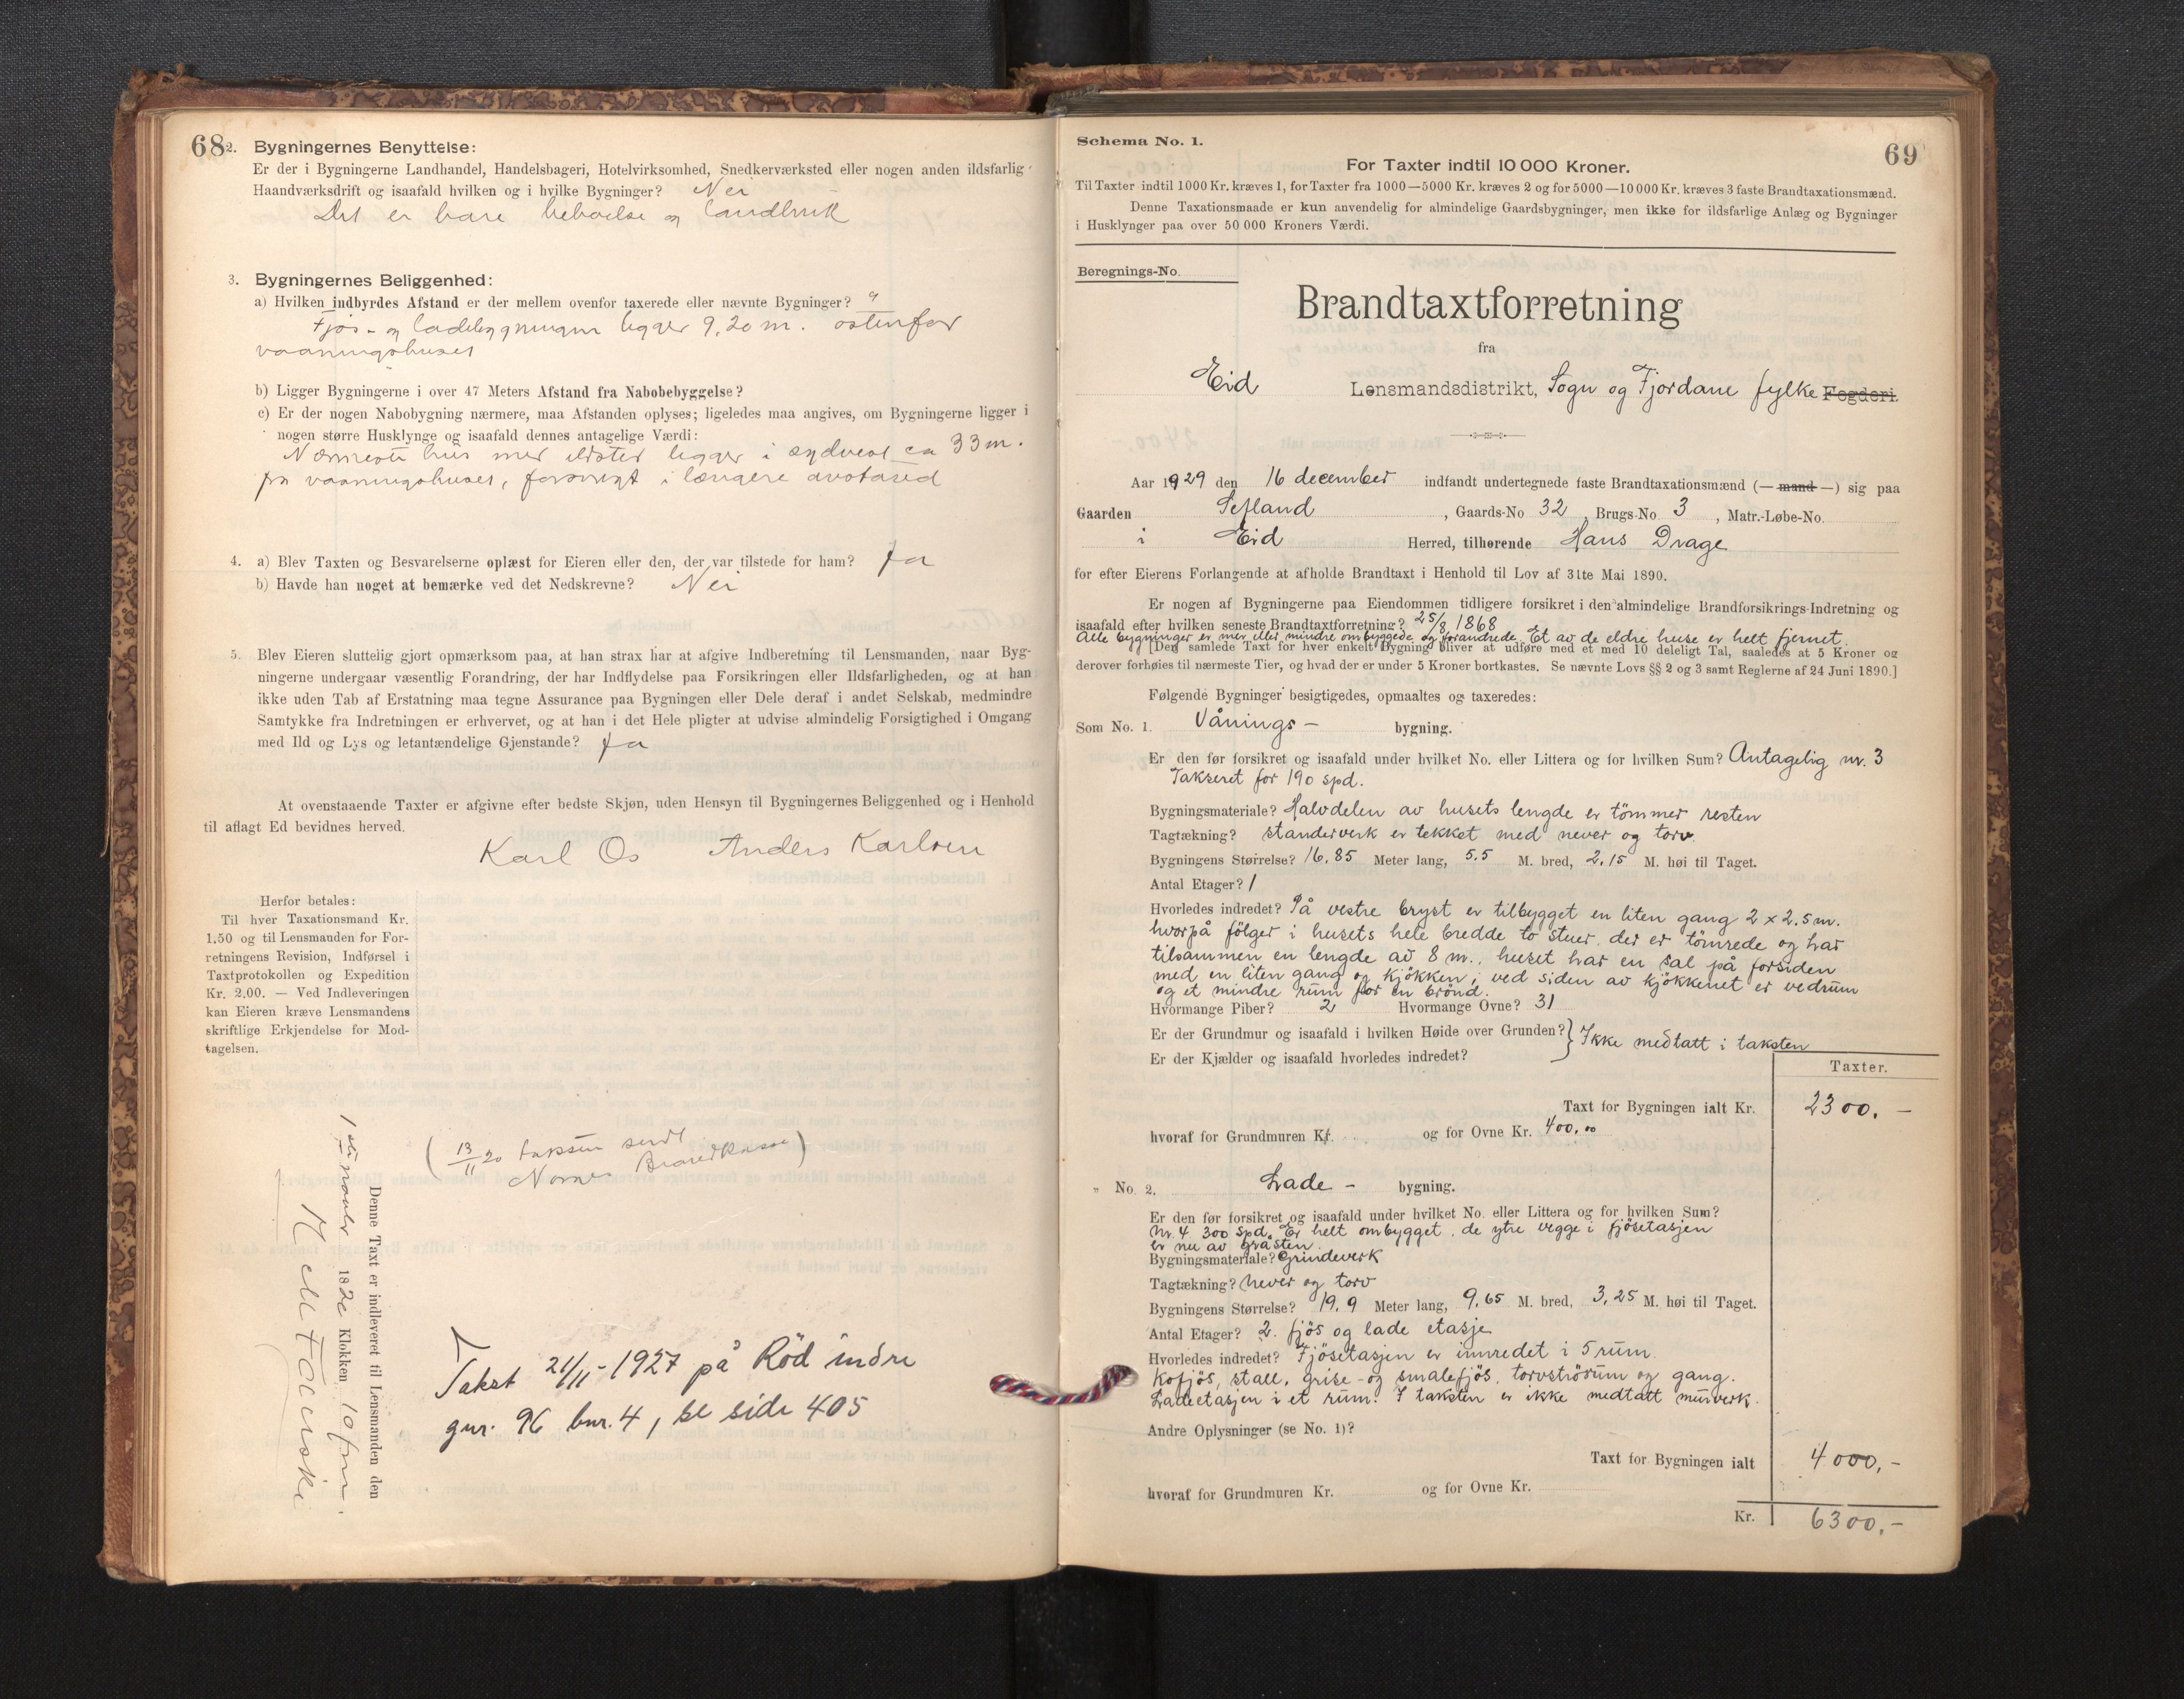 68
2. Bygningernes Benyttelse:
Er der i Bygningerne Landhandel, Handelsbageri, Hotelvirksomhed, Snedkerværksted eller nogen anden ildsfarlig
Haandværksdrift og isaafald hvilken og i hvilke Bygninger? Nei
Det er bare beboelse og landbruk
3. Bygningernes Beliggenhed:
a) Hvilken indbyrdes Afstand er der mellem ovenfor taxerede eller nævnte Bygninger?
Fjøs- og ladebygningen ligger 9,20 m. østenfor
vaaningshuset
b) Ligger Bygningerne i over 47 Meters Afstand fra Nabobebyggelse?
c) Er der nogen Nabobygning nærmere, maa Afstanden oplyses; ligeledes maa angives, om Bygningerne ligger i
nogen større Husklynge og isaafald dennes antagelige Værdi:
Nærmeste hus med ildsted ligger i sydvest ca 33 m.
fra vaaningshuset, forøvrigt i længere avstand
4. a) Blev Taxten og Besvarelserne oplæst for Eieren eller den, der var tilstede for ham? Ja
b) Havde han noget at bemærke ved det Nedskrevne? Nei
5. Blev Eieren sluttelig gjort opmærksom paa, at han strax har at afgive Indberetning til Lensmanden, naar Byg-
ningerne undergaar væsentlig Forandring, der har Indflydelse paa Forsikringen eller Ildsfarligheden, og at han
ikke uden Tab af Erstatning maa tegne Assurance paa Bygningen eller Dele deraf i andet Selskab, medmindre
Samtykke fra Indretningen er erhvervet, og at han i det Hele pligter at udvise almindelig Forsigtighed i Omgang
med Ild og Lys og letantændelige Gjenstande? Ja
At ovenstaaende Taxter er afgivne efter bedste Skjøn, uden Hensyn til Bygningernes Beliggenhed og i Henhold
til aflagt Ed bevidnes herved.
Karl Os Anders Karlsen
Herfor betales:
Til hver Taxationsmand Kr.
1.50 og til Lensmanden for For-
retningens Revision, Indførsel i
Taxtprotokollen og Expedition
Kr. 2.00. — Ved Indleveringen
kan Eieren kræve Lensmandens
skriftlige Erkjendelse for Mod-
tagelsen.
Denne Taxt er indleveret til Lensmanden den
1 ste novbr 1820 Klokken 10 fm.
(13/11 20 taksten sendt
Norges Brandkasse)
Takst 21/11-1927 på Röd indre
gnr. 96 bnr. 4, se side 405
69
Schema No. 1.
For Taxter indtil 10 000 Kroner.
Til Taxter indtil 1000 Kr. kræves 1, for Taxter fra 1000—5000 Kr. kræves 2 og for 5000—10 000 Kr. kræves 3 faste Brandtaxationsmænd.
Denne Taxationsmaade er kun anvendelig for almindelige Gaardsbygninger, men ikke for ildsfarlige Anlæg og Bygninger
i Husklynger paa over 50 000 Kroners Værdi.
Beregnings-No.
Brandtaxtforretning
fra
Eid Lensmandsdistrikt, Sogn og Fjordane fylke Fogderi.
Aar 1929 den 16 december indfandt undertegnede faste Brandtaxationsmænd (— mand —) sig paa
Gaarden Sefland, Gaards-No 32, Brugs-No 3, Matr.-Løbe-No.
i Eid Herred, tilhørende Hans Drage
for efter Eierens Forlangende at afholde Brandtaxt i Henhold til Lov af 31te Mai 1890.
Er nogen af Bygningerne paa Eiendommen tidligere forsikret i den almindelige Brandforsikrings-Indretning og
isaafald efter hvilken seneste Brandtaxtforretning? 25/8 1868
Alle bygninger er mer eller mindre ombyggede og forandrede. Et av de eldre huse er helt fjernet.
[Den samlede Taxt for hver enkelt Bygning bliver at udføre med et med 10 deleligt Tal, saaledes at 5 Kroner og
derover forhøies til nærmeste Tier, og hvad der er under 5 Kroner bortkastes. Se nævnte Lovs §§ 2 og 3 samt Reglerne af 24 Juni 1890.]
Følgende Bygninger besigtigedes, opmaaltes og taxeredes:
Som No. 1. Vånings- bygning.
Er den før forsikret og isaafald under hvilket No. eller Littera og for hvilken Sum? Antagelig nr. 3
Takseret for 190 spd.
Bygningsmateriale? Halvdelen av husets lengde er tömmer resten
Tagtækning? standerverk er tekket med never og torv.
Bygningens Størrelse? 16,85 Meter lang, 5.5 M. bred, 2,15 M. høi til Taget.
Antal Etager? 1
Hvorledes indredet? På vestre bryst er tilbygget en liten gang 2 x 2.5 m.
hvorpå fölger i husets hele bredde to stuer, der er tömrede og har
tilsammen en lengde av 8 m., huset har en sal på forsiden
med en liten gang og kjökken; ved siden av kjökkenet er vedrum
og et mindre rum for en brönd.
Hvormange Piber? 2 Hvormange Ovne? 31
Er der Grundmur og isaafald i hvilken Høide over Grunden?} Ikke medtatt i taksten
Er der Kjælder og isaafald hvorledes indredet?
Taxter.
Taxt for Bygningen ialt Kr. 2300.-
hvoraf for Grundmuren Kr. og for Ovne Kr. 400.00
" No. 2. Lade- bygning.
Er den før forsikret og isaafald under hvilket No. eller Littera og for hvilken Sum?
Nr. 4. 300 spd. Er helt ombygget, de ytre vegge i fjösetasjen
er nu av gråsten.
Bygningsmateriale? Grindeverk
Tagtækning? never og torv
Bygningens Størrelse? 19,9 Meter lang, 9,65 M. bred, 3,25 M. høi til Taget.
Antal Etager? 2. fjös og lade etasje
Hvorledes indredet? Fjösetasjen er innredet i 5 rum.
Kofjös, stall, grise- og smalefjös, torvströrum og gang.
Ladeetasjen i et rum. I taksten er ikke medtatt murverk.
Andre Oplysninger (se No. 1)?
Taxt for Bygningen ialt 4000,-
hvoraf for Grundmuren Kr. og for Ovne Kr.
Kr. 6300.-